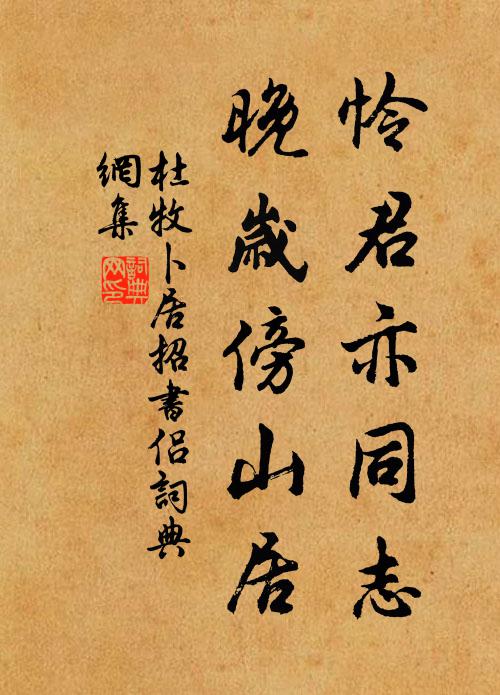 怜君亦同志
晚歲傍山居
杜牧卜居招書侶詞典
網集
詞典
网印